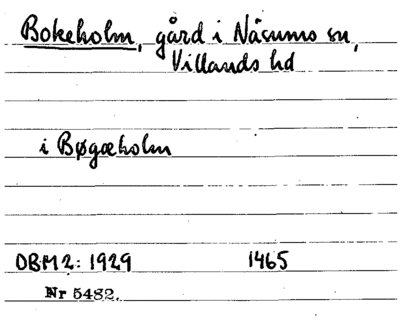 Bokeholm, gård i Näsums sn,
Villands hd
i Bøgæholm
DBM2: 1929 1465
Nr 5482.